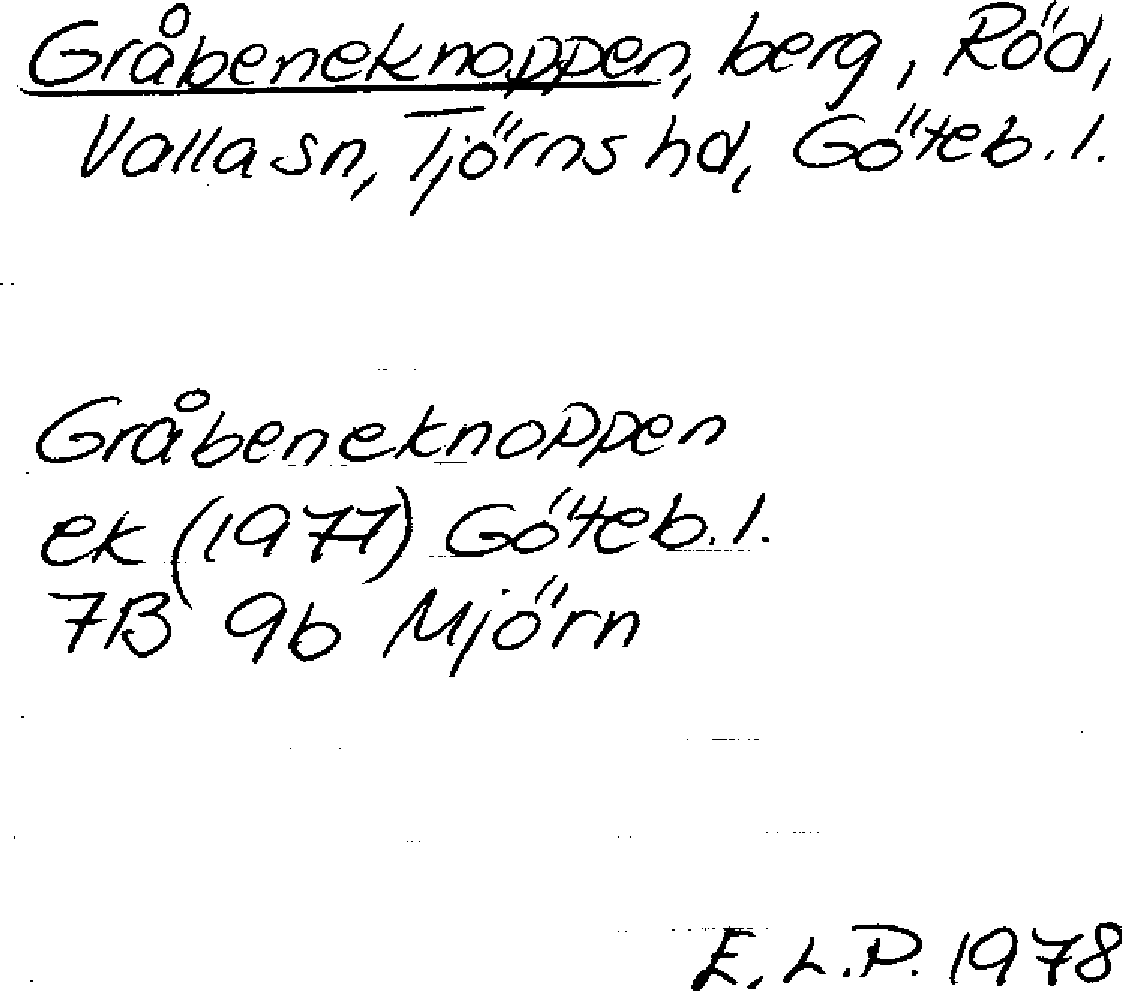 Gråbeneknoppen, berg, Röd,
Valla sn, Tjörns hd, Göteb. l.
Gråbeneknoppen
ek (1977) Göteb. l.
7B 9b Mjörn
E. L. P. 1978